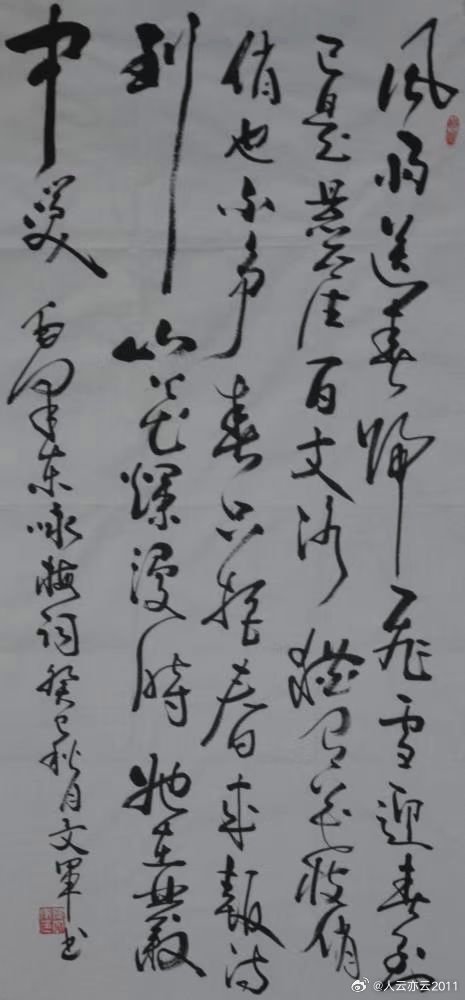 風雨送春歸飛雪迎春到
已是懸崖百丈冰猶有花枝俏
俏也不争春只把春来報待
到山花爛漫時她在叢
中笑 毛澤东咏梅詞癸巳秋月文軍书
@人云亦云2011